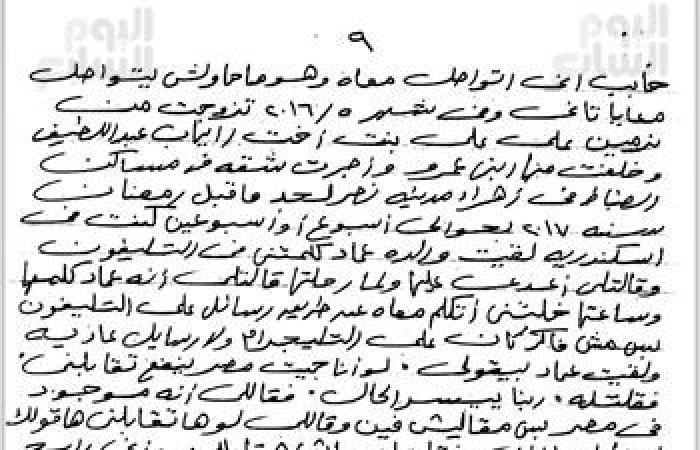 ٩
خايب انى اتواصل معاه وهو ماحاولش يتواصل
معايا تانى وفى شهر ٢٠١٦/٥ تزوجت من
على بنت أخت إيهاب عبداللطيف
وخلفت منها ابنى عمرو وأجرت شقه فى مساكن
الضباط فى زهراء مدينه نصر لحد ماقبل رمضان
سنه ٢٠١٧ بحوالى أسبوع أو أسبوعين كنت فى
اسكندريه لقيت والده عماد كلمتنى فى التليفون
وقالتلى أعدى عليها ولما رحلتها قالتلى أنه عماد كلمها
وساعتها خلتنى أتكلم معاه عن طريق رسائل على التليفون
بس مش فاكر كان على التليجرام ولا رسايل عاديه
ولقيت عماد بيقولى لو أنا جيت مصر ينفع تقابلنى
فقلتله ربنا ييسر الحال فقالى أنه موجود
فى مصر بس مقاليش فين وقالى لو هاتقابلنى هاقولك